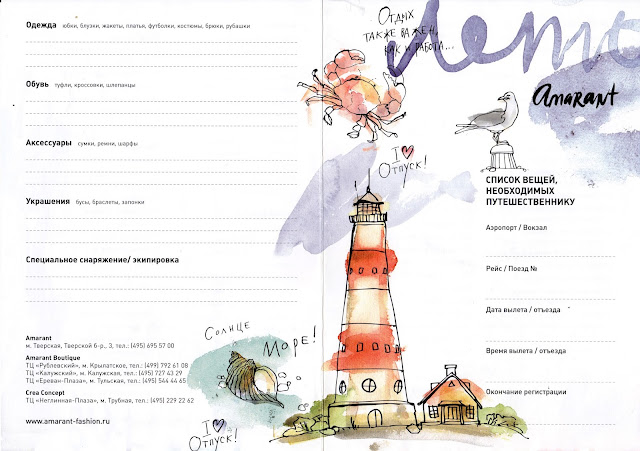 Одежда юбки, блузки, жакеты, платья, футболки, костюмы, брюки, рубашки
Обувь туфли, кроссовки, шлепанцы
Аксессуары сумки, ремни, шарфы
Украшения бусы, браслеты, запонки
Специальное снаряжение/ экипировка
Amarant
м. Тверская, Тверской б-р., 3, тел.: (495) 695 57 00
Amarant Boutique
ТЦ «Рублевский», м. Крылатское, тел.: (499) 792 61 08
ТЦ «Калужский», м. Калужская, тел.: (495) 727 43 29
ТЦ «Ереван-Плаза», м. Тульская, тел.: (495) 544 44 65
Crea Concept
ТЦ «Неглинная-Плаза», м. Трубная, тел.: (495) 229 22 62
www.amarant-fashion.ru
Отдых
также важен,
как и работа...
I ♥
Отпуск!
Солнце
Море!
I ♥
Отпуск!
Лето
Amarant
СПИСОК ВЕЩЕЙ,
НЕОБХОДИМЫХ
ПУТЕШЕСТВЕННИКУ
Аэропорт / Вокзал
Рейс / Поезд №
Дата вылета / отъезда
Время вылета / отъезда
Окончание регистрации